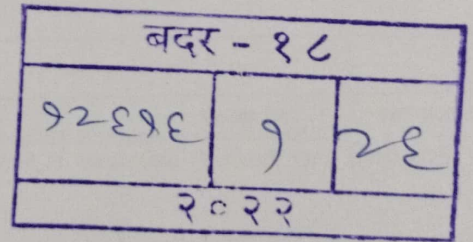 बदर - १८
१२६१६ १ २६
२०२२